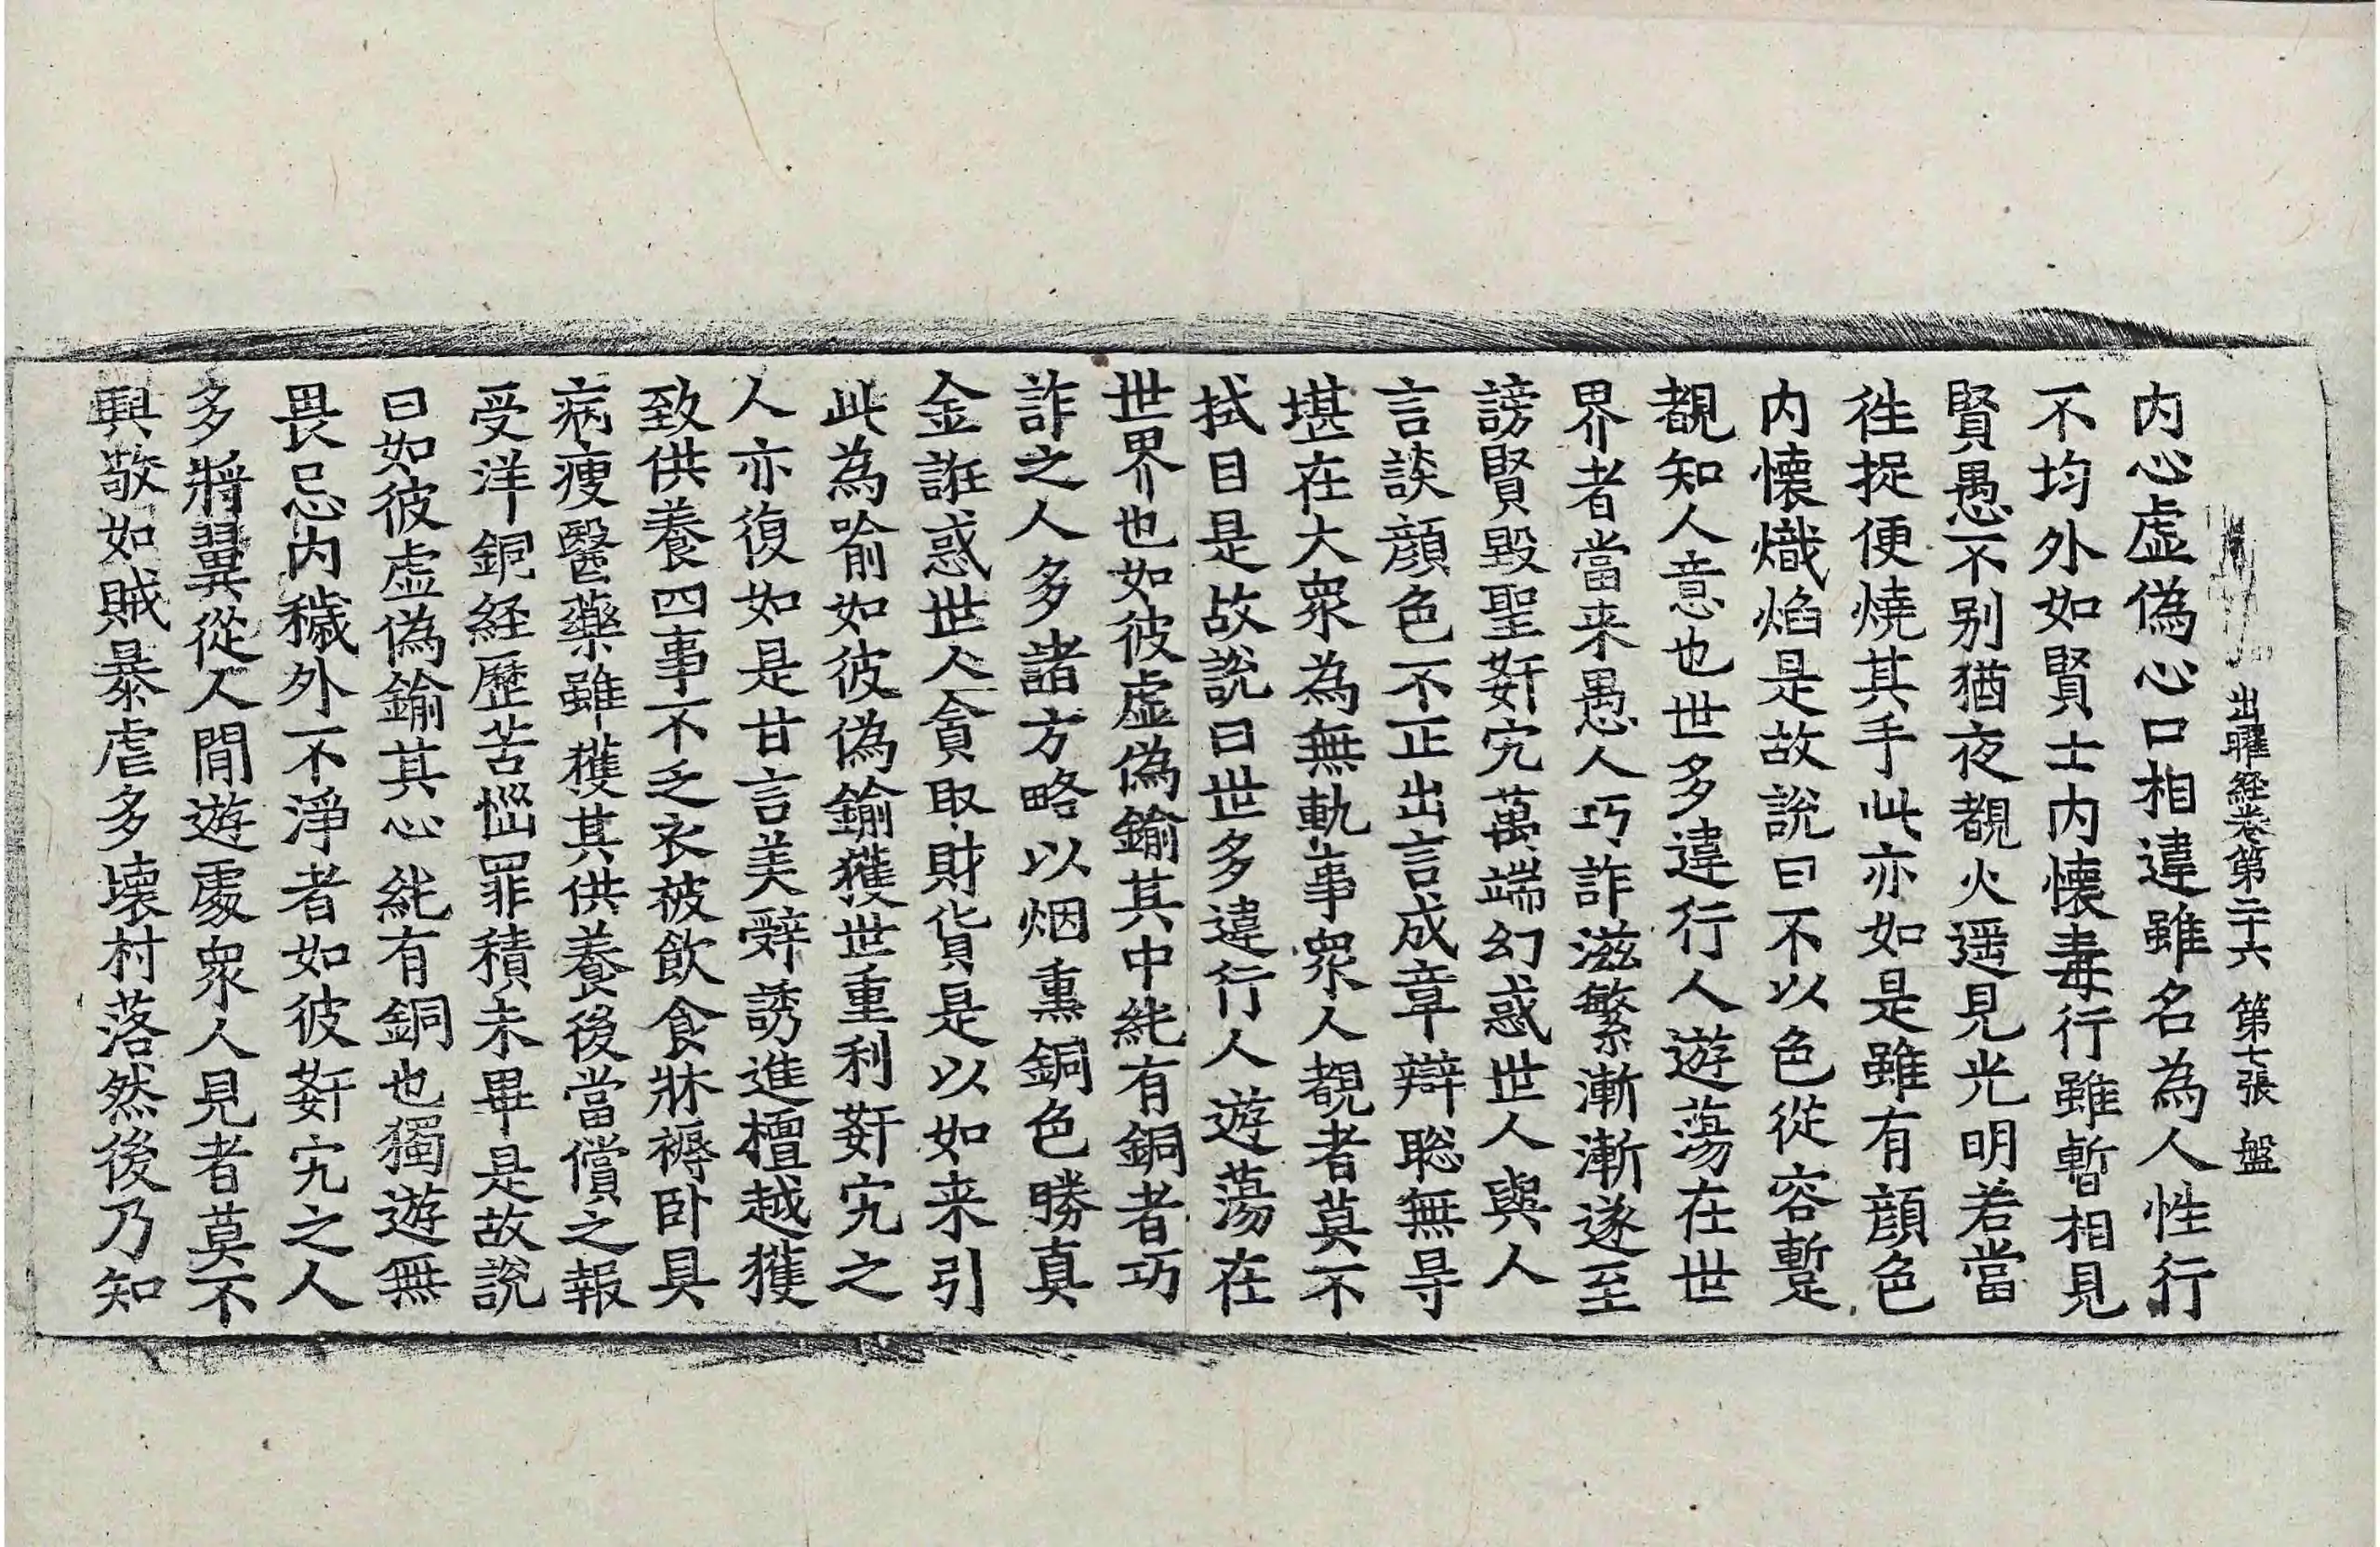 出曜経卷第二十六 第七張 盤
内心虚偽心口相違雖名為人性行
不均外如賢士内懷毒行雖暫相見
賢愚不别猶夜覩火遥見光明若當
徃捉便燒其手此亦如是雖有顔色
内懷熾焰是故說曰不以色從容蹔
覩知人意也世多違行人遊蕩在世
界者當来愚人巧詐滋繁漸漸遂至
謗賢毀聖姧宄萬端幻惑世人與人
言談顔色不正出言成章辯聡無㝵
堪在大衆為無軌事衆人覩者莫不
拭目是故說曰世多違行人遊蕩在
世界也如彼虚偽鍮其中純有銅者巧
詐之人多諸方略以烟熏銅色勝真
金誑惑世人貪取財貨是以如来引
此為喻如彼偽鍮獲世重利姧宄之
人亦復如是甘言美辭誘進檀越獲
致供養四事不乏衣被飲食牀褥卧具
病瘦醫藥雖獲其供養後當償之報
受洋銅経歷苦惱罪積未畢是故說
曰如彼虚偽鍮其心純有銅也獨遊無
畏忌内穢外不淨者如彼姧宄之人
多將翼從人間遊處衆人見者莫不
興敬如賊暴虐多壊村落然後乃知